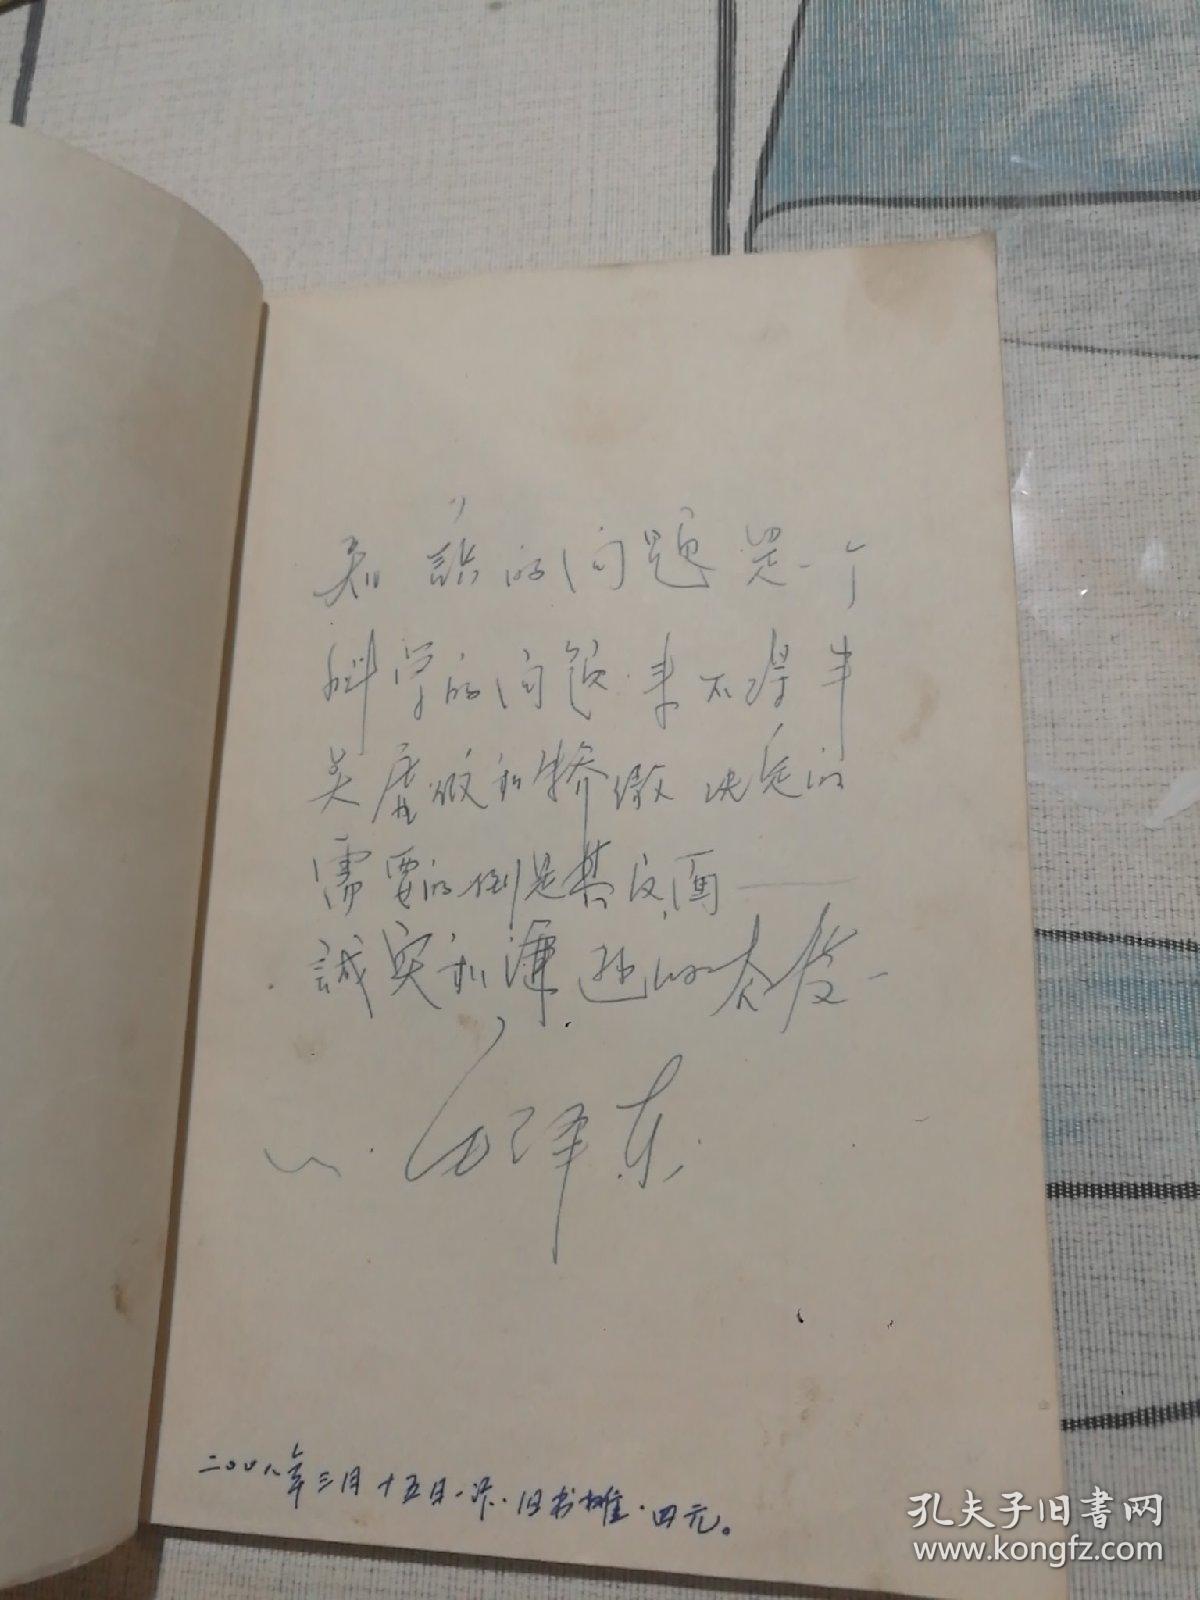 知識的问题是一个
科学的问题来不得半
点虚假和骄傲决定的
需要的倒是其反面——
誠实和谦逊的态度
毛泽东
二〇〇八年三月十五日·旧书摊·四元。
孔夫子旧书网
www.kongfz.com